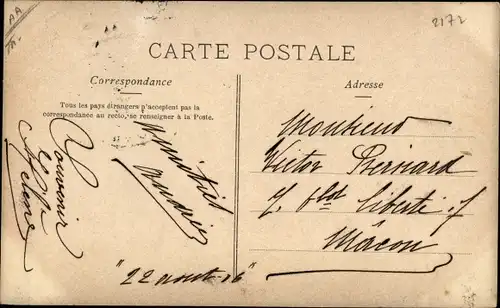 2172
AA
CARTE POSTALE
Correspondance
Tous les pays étrangers n'acceptent pas la
correspondance au recto, se renseigner à la Poste.
Souvenir
Amitié
"22 août 16"
Adresse
Monsieur
Victor Bernard
7, Bld Liberté
Mâcon